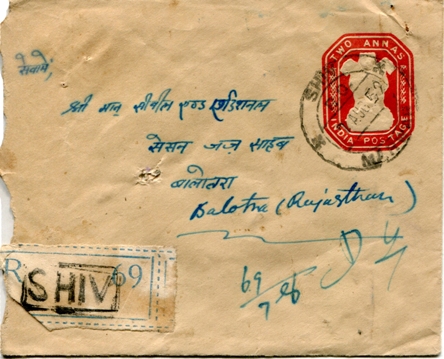 सेवामें,
TWO ANNAS
INDIA POSTAGE
SHIV
श्री मान् सीवील एण्ड एडिशनल
सेसन जज साहब
बालोतरा
Balotra (Rajasthan)
R SHIV 69
69